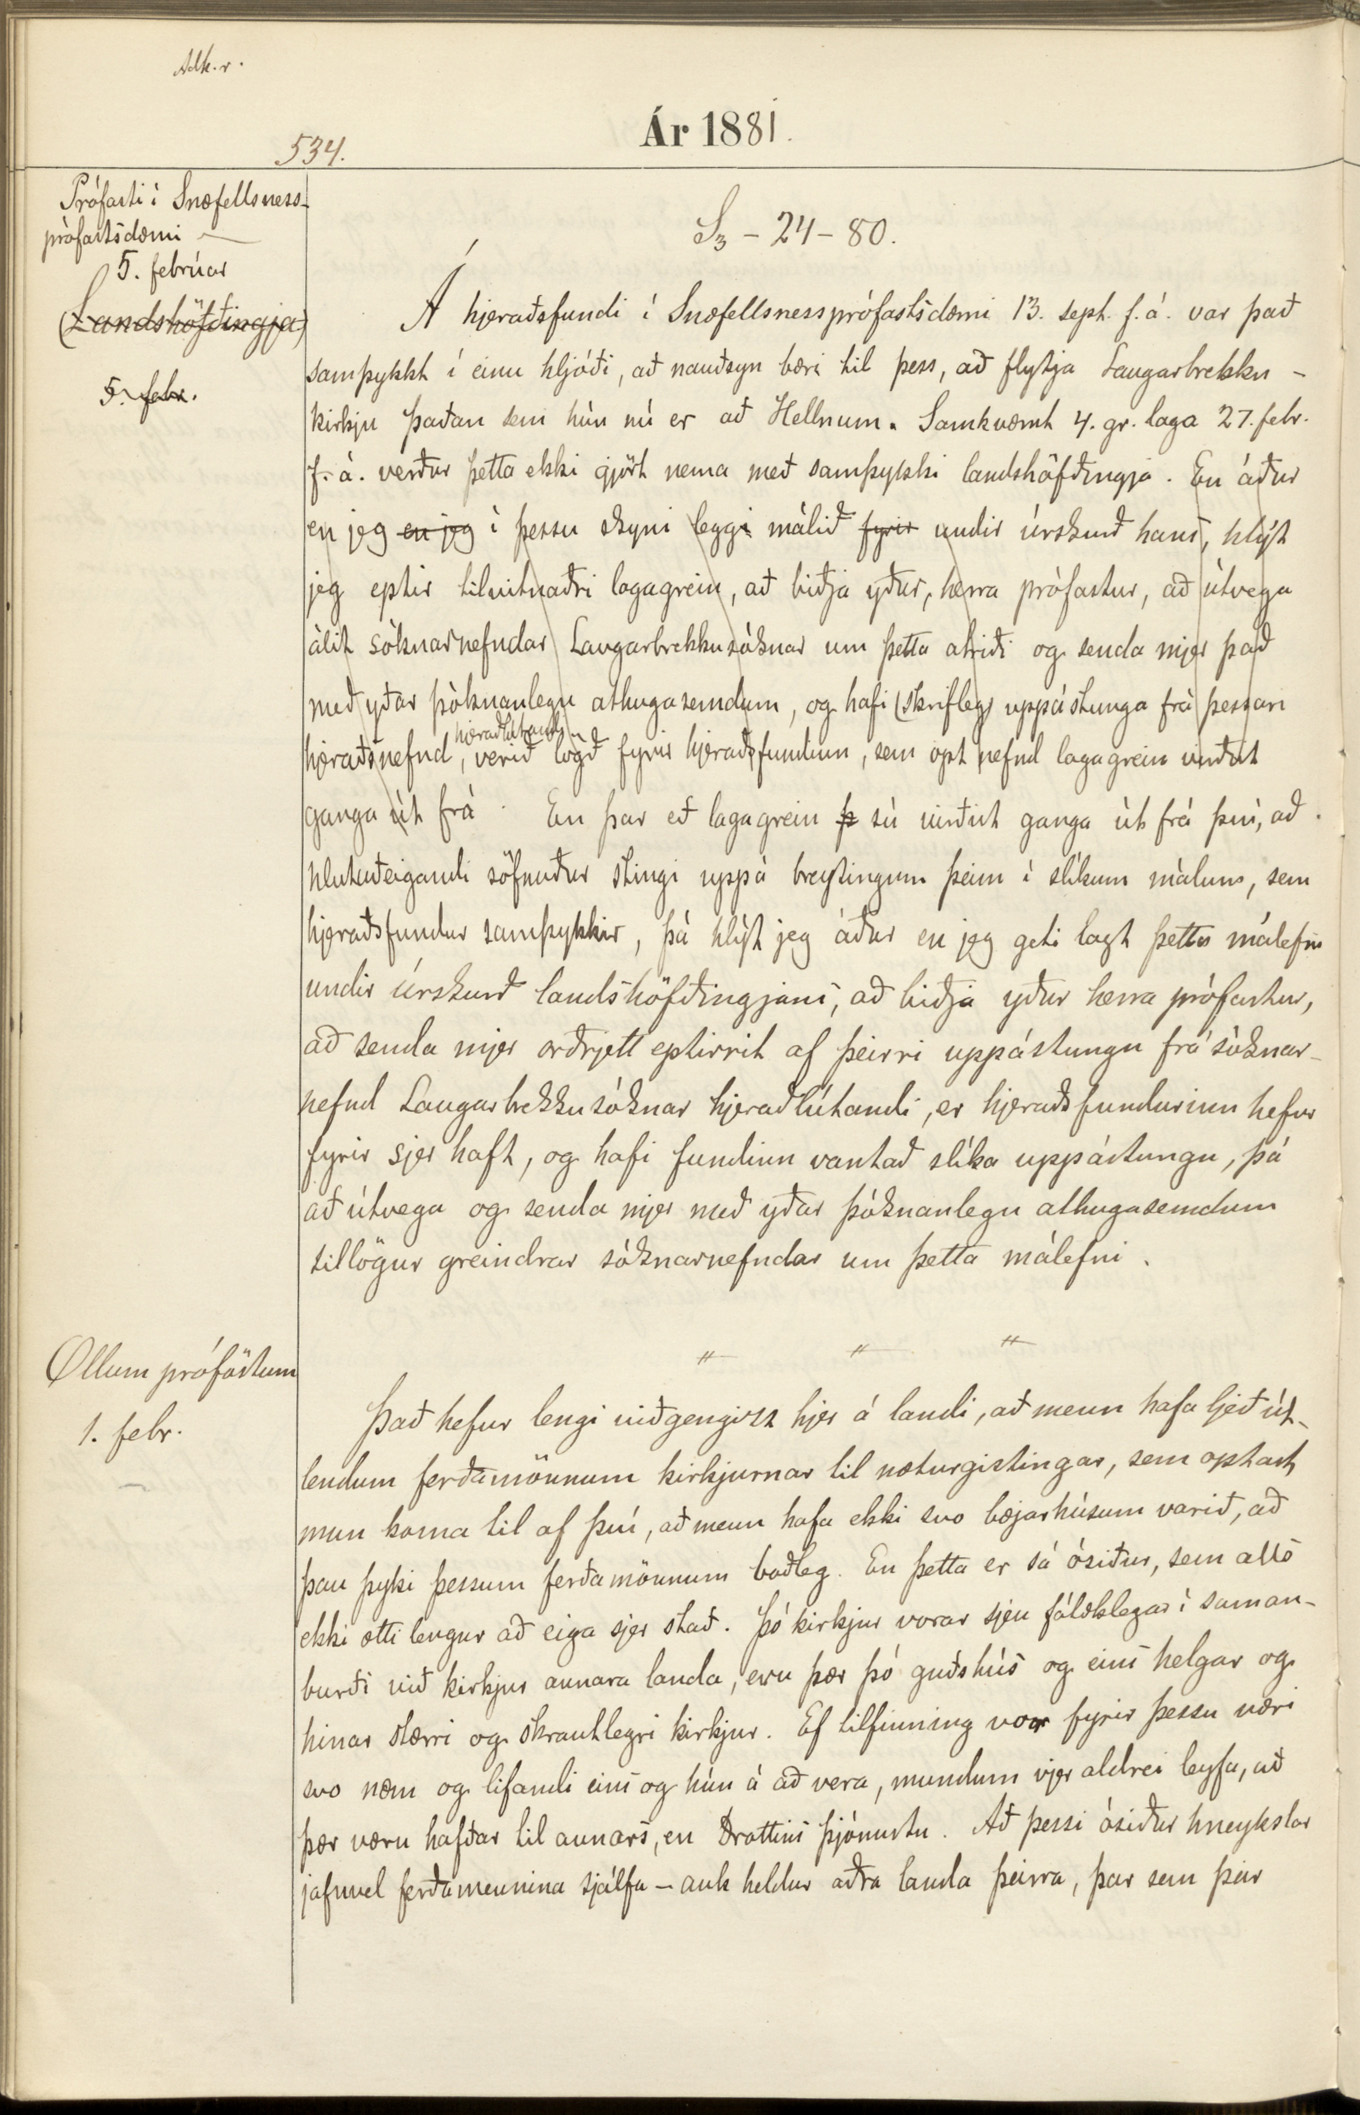 Adk. v.
Ár 1881.
534.
Prófasti í Snæfellsness-
prófastsdæmi —
5. febrúar
(Landshöfðingja)
5. febr.
S3 – 24 – 80.
Á hjeraðsfundi í Snæfellsnessprófastsdæmi 13. sept. f. á. var það
samþykkt í einu hljóði, að nauðsyn bæri til þess, að flytja Laugarbrekku-
kirkju þaðan sem hún nú er að Hellnum. Samkvæmt 4. gr. laga 27. febr.
f. á. verður þetta ekki gjört nema með samþykki landshöfðingja. En áður
en jeg en jeg í þessu skyni leggi málið fyrir undir úrskurð hans, hlýt
jeg eptir tilvitnaðri lagagrein, að biðja yður, herra prófastur, að útvega
álit sóknarnefndar Laugarbrekkusóknar um þetta atriði og senda mjer það
með yðar þóknanlegu athugasemdum, og hafi (skrifleg) uppástunga frá þessari
hjeraðlútandi
hjeraðsnefnd, verið lögð fyrir hjeraðsfundinn, sem opt nefnd lagagrein virðist
ganga út frá. En þar eð lagagrein þ sú virðist ganga út frá því, að
hlutaðeigandi söfnuður stingi uppá breytingum þeim í slíkum málum, sem
hjeraðsfundur samþykkir, þá hlýt jeg áður en jeg geti lagt þetta málefni
undir úrskurð landshöfðingjans, að biðja yður herra prófastur,
að senda mjer orðrjett eptirrit af þeirri uppástungu frá sóknar-
nefnd Laugarbrekkusóknar hjeraðlútandi, er hjeraðsfundurinn hefur
fyrir sjer haft, og hafi fundinn vantað slíka uppástungu, þá
að útvega og senda mjer með yðar þóknanlegu athugasemdum
tillögur greindrar sóknarnefndar um þetta málefni.
〃 〃 〃
Øllum próföstum
1. febr.
Það hefur lengi viðgengizt hjer á landi, að menn hafa ljeð út-
lendum ferðamönnum kirkjurnar til næturgistingar, sem optast
mun koma til af því, að menn hafa ekki svo bæjarhúsum varið, að
þau þyki þessum ferðamönnum boðleg. En þetta er sá ósiður, sem alls
ekki ætti lengur að eiga sjer stað. Þó kirkjur vorar sjeu fálæklegar í saman-
burði við kirkjur annara landa, eru þær þó guðshús og eins helgar og
hinar stærri og skrautlegri kirkjur. Ef tilfinning vor fyrir þessu væri
svo næm og lifandi eins og hún á að vera, mundum vjer aldrei leyfa, að
þær væru hafðar til annars, en Drottins þjónustu. Að þessi ósiður hneykslar
jafnvel ferðamennina sjálfa – auk heldur aðra landa þeirra, þar sem þeir